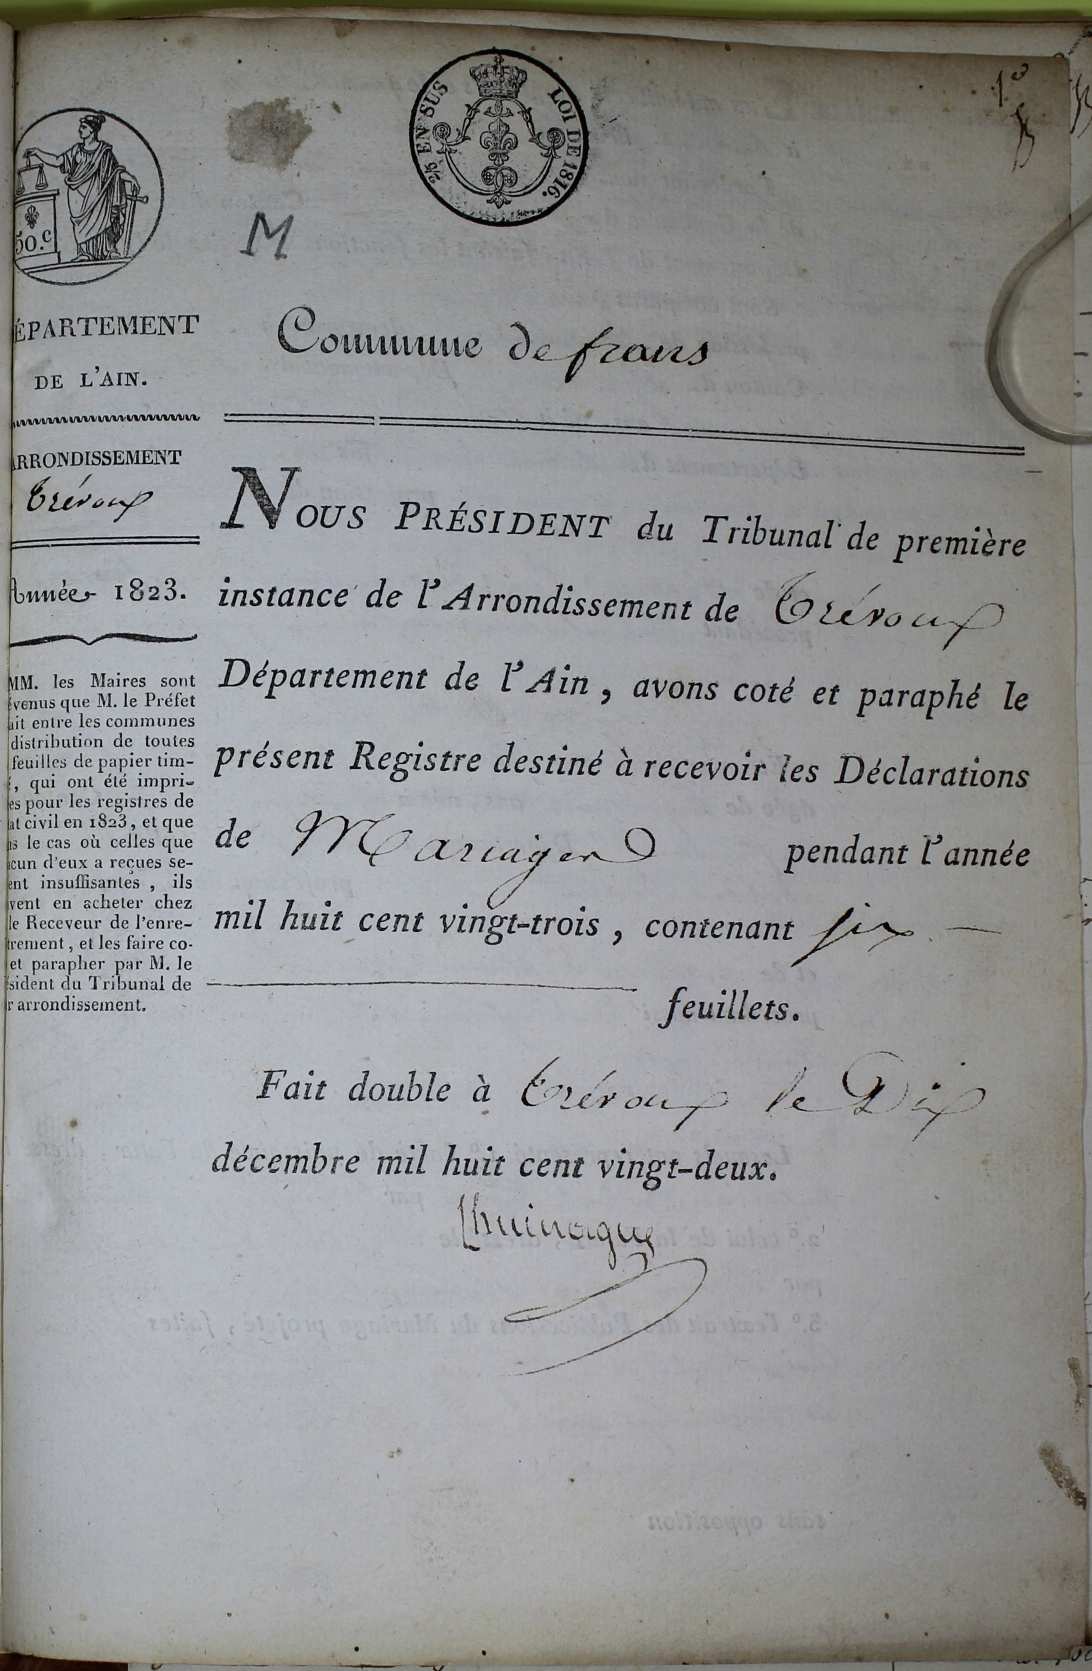 2/10 EN SUS LOI DE 1816.
1.e
50.c
M
ÉPARTEMENT
DE L'AIN.
ARRONDISSEMENT
Trévoux
Année 1823.
MM. les Maires sont
évenus que M. le Préfet
ait entre les communes
distribution de toutes
feuilles de papier tim-
é, qui ont été impri-
es pour les registres de
at civil en 1823, et que
ns le cas où celles que
acun d'eux a reçues se-
ent insuffisantes, ils
vent en acheter chez
le Receveur de l'enre-
trement, et les faire co-
et parapher par M. le
ésident du Tribunal de
r arrondissement.
Commune de frans
NOUS PRÉSIDENT du Tribunal de première
instance de l'Arrondissement de Trévoux
Département de l'Ain, avons coté et paraphé le
présent Registre destiné à recevoir les Déclarations
de Mariages pendant l'année
mil huit cent vingt-trois, contenant six
feuillets.
Fait double à Trévoux le Dix
décembre mil huit cent vingt-deux.